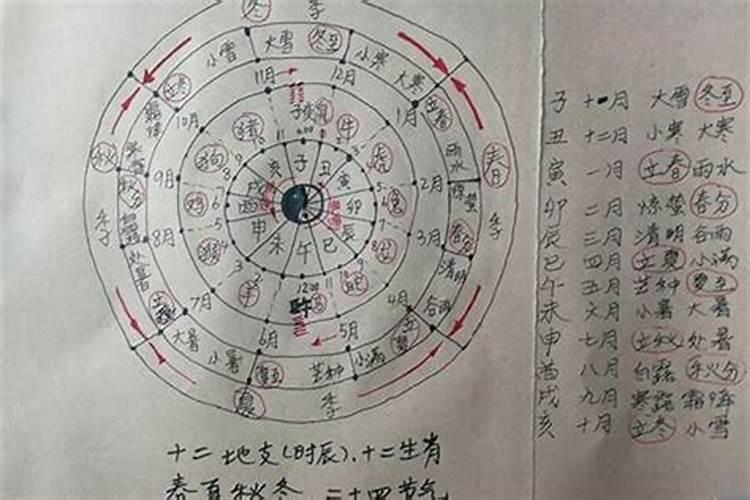 冬 季
小雪 大雪 冬至 小寒 大寒
立冬 11月 12月 立春
10月 1月 雨水
秋 季
春 季
9月 2月 惊蛰
秋分 春分
8月 3月 清明
处暑 谷雨
立秋 7月 4月 立夏
大暑 小暑 6月 5月 小满
夏至 芒种
夏 季
猪 牛
狗 虎
鸡 兔
猴
羊
亥 子 丑
戌 寅
酉 卯
申 辰
未 午 巳
12:00
子 十一月 大雪 冬至
丑 十二月 小寒 大寒
寅 一月 立春 雨水
卯 二月 惊蛰 春分
辰 三月 清明 谷雨
巳 四月 立夏 小满
午 五月 芒种 夏至
未 六月 小暑 大暑
申 七月 立秋 处暑
酉 八月 白露 秋分
戌 九月 寒露 霜降
亥 十月 立冬 小雪
十二地支(时辰)、十二生肖
春夏秋冬 二十四节气